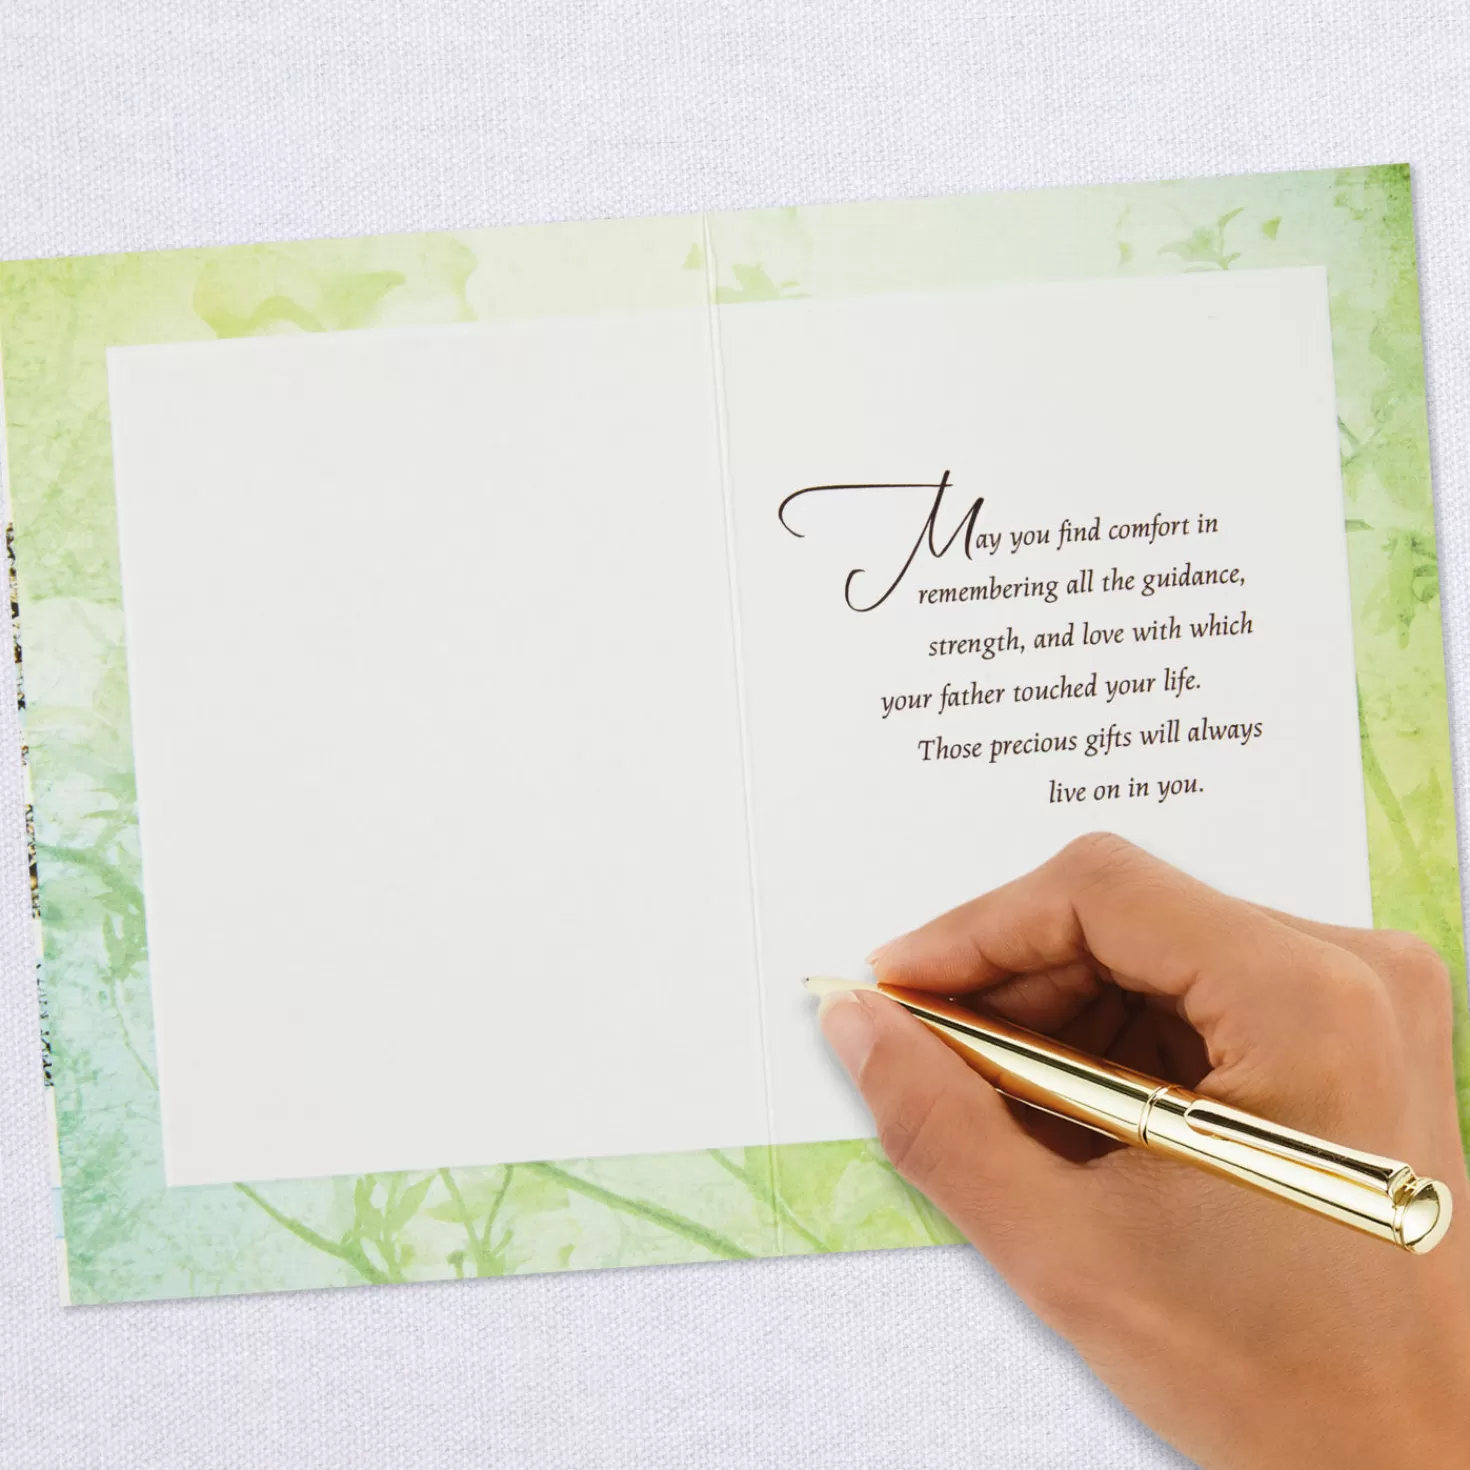 May you find comfort in
remembering all the guidance,
strength, and love with which
your father touched your life.
Those precious gifts will always
live on in you.